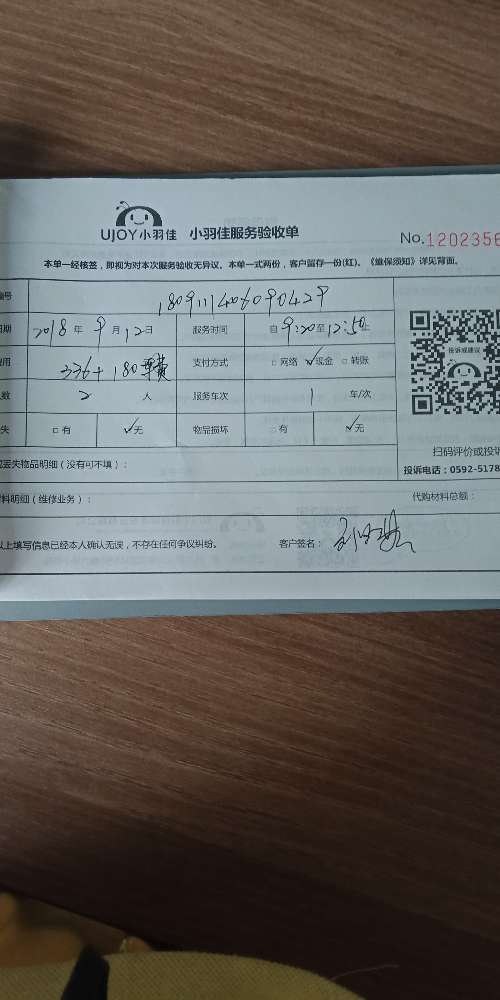 UJOY小羽佳 小羽佳服务验收单
No.1202356
本单一经核签，即视为对本次服务验收无异议。本单一式两份，客户留存一份(红)。《维保须知》详见背面。
编号 1809111406090429
日期 2018 年 9 月 12 日 服务时间 自 9:20 至 12:50 止
费用 336+180车费 支付方式 □网络 ✓现金 □转账
人数 2 人 服务车次 1 车/次
失 □有 ✓无 物品损坏 □有 ✓无
投诉或建议
扫码评价或投诉
投诉电话：0592-5178
丢失物品明细（没有可不填）：
材料明细（维修业务）： 代购材料总额：
以上填写信息已经本人确认无误，不存在任何争议纠纷。 客户签名：